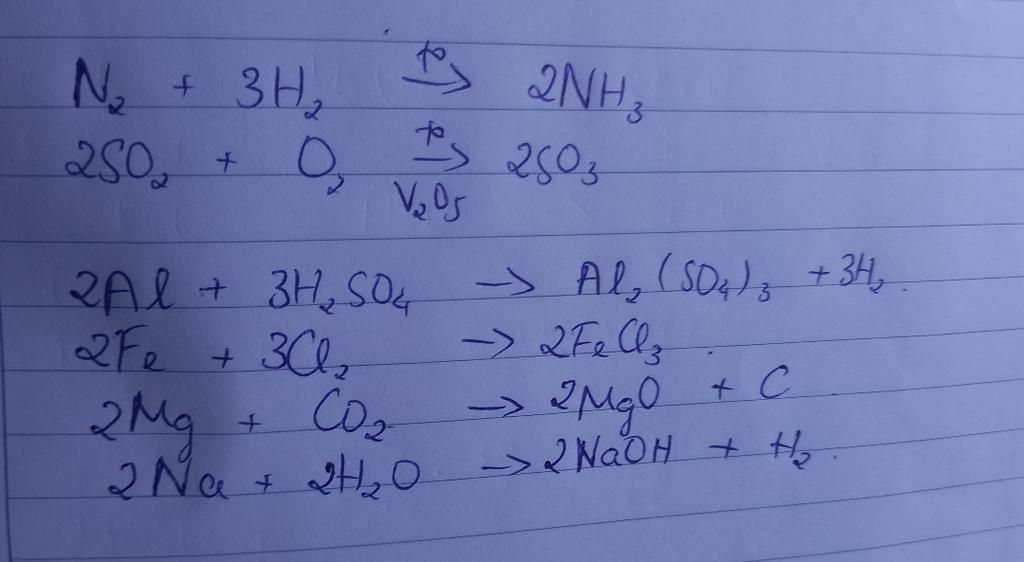 N₂ + 3H₂ →(t°) 2NH₃
2SO₂ + O₂ →(t°, V₂O₅) 2SO₃
2Al + 3H₂SO₄ → Al₂(SO₄)₃ + 3H₂.
2Fe + 3Cl₂ → 2FeCl₃.
2Mg + CO₂ → 2MgO + C
2Na + 2H₂O → 2NaOH + H₂.